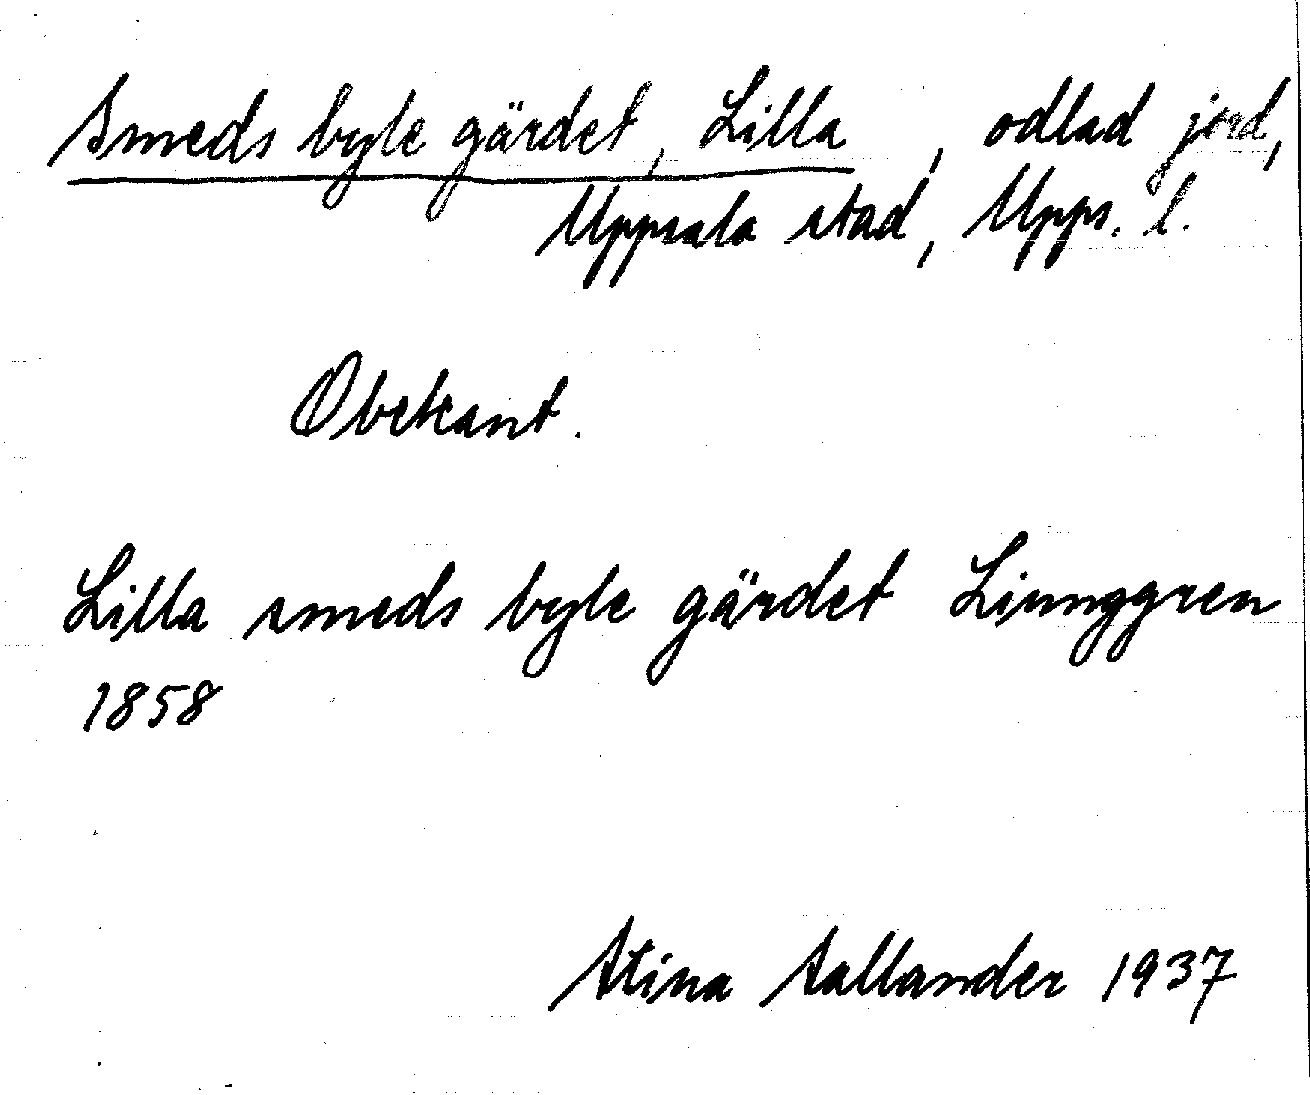 Smeds byle gärdet, Lilla, odlad jord,
Uppsala stad, Upps. l.
Obekant.
Lilla smeds byle gärdet Linnggren
1858
Stina Sallander 1937